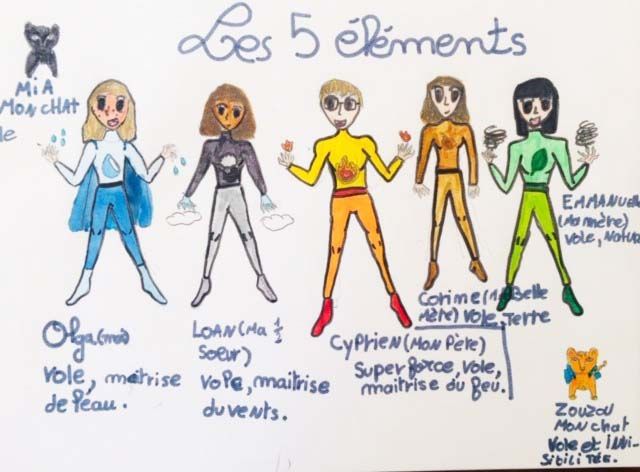 Les 5 éléments
MiA
MON CHAT
le
Olga (moi)
vole, maîtrise
de l'eau.
LOAN (Ma 1/2
soeur)
vole, maitrise
du vents.
CYPRIEN (MON PÈRE)
Super force, vole,
maitrise du feu.
Corinne (Belle
Mère) Vole, Terre
EMMANUELLE
(Ma mère)
Vole, Natur
ZOUZOU
MON chat
Vole et INVI-
SibiliTÉE.